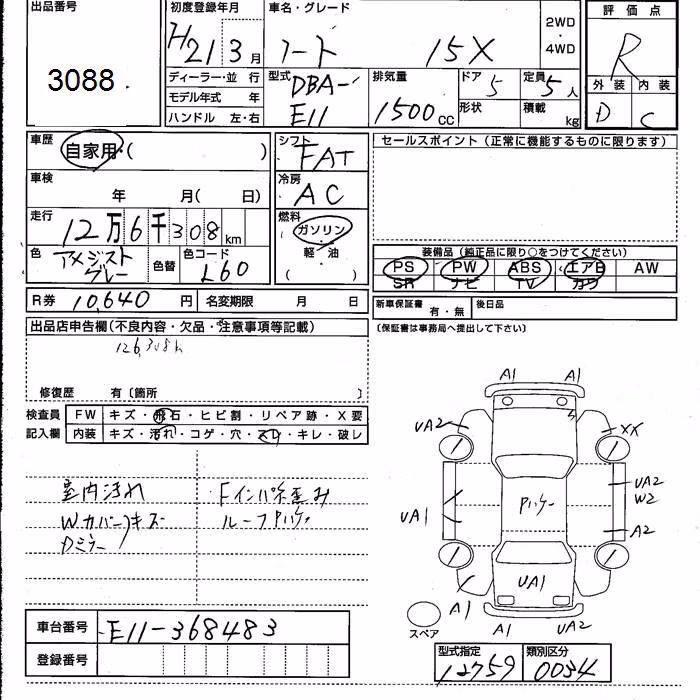 出品番号
3088
初度登録年月
H21 3月
車名・グレード
ノート 15X
2WD
・
4WD
評価点
R
外装 内装
D C
ディーラー・並 行
モデル年式 年
ハンドル 左・右
型式
DBA-
E11
排気量
1500cc
ドア 5
形状
定員 5人
積載 kg
車歴
自家用・( )
車検
年 月( 日)
走行
12万6千308km
色
アメジスト
グレー
色替
色コード
L60
シフト
FAT
冷房
AC
燃料
ガソリン
軽・油
( )
セールスポイント (正常に機能するものに限ります)
装備品 (純正品に限り○をつけてください)
PS PW ABS エアB AW
SR ナビ TV カワ
R券 10,640円
名変期限 月 日
新車保証書 有・無
後日品
(保証書は事務局へ提出して下さい)
出品店申告欄(不良内容・欠品・注意事項等記載)
126,308k
修復歴 有〔箇所 〕
検査員 FW キズ・飛石・ヒビ割・リペア跡・X要
記入欄 内装 キズ・汚れ・コゲ・穴・スリ・キレ・破レ
室内汚れ
Wカバーキズ
Dミラー
Fインパネ歪み
ルーフPハケー
A1 A1
UA2
XX
UA2
W2
UA1
Pハケー
A2
UA1
A1
A1
UA2
スペア
車台番号 E11-368483
登録番号
型式指定
12759
類別区分
0034